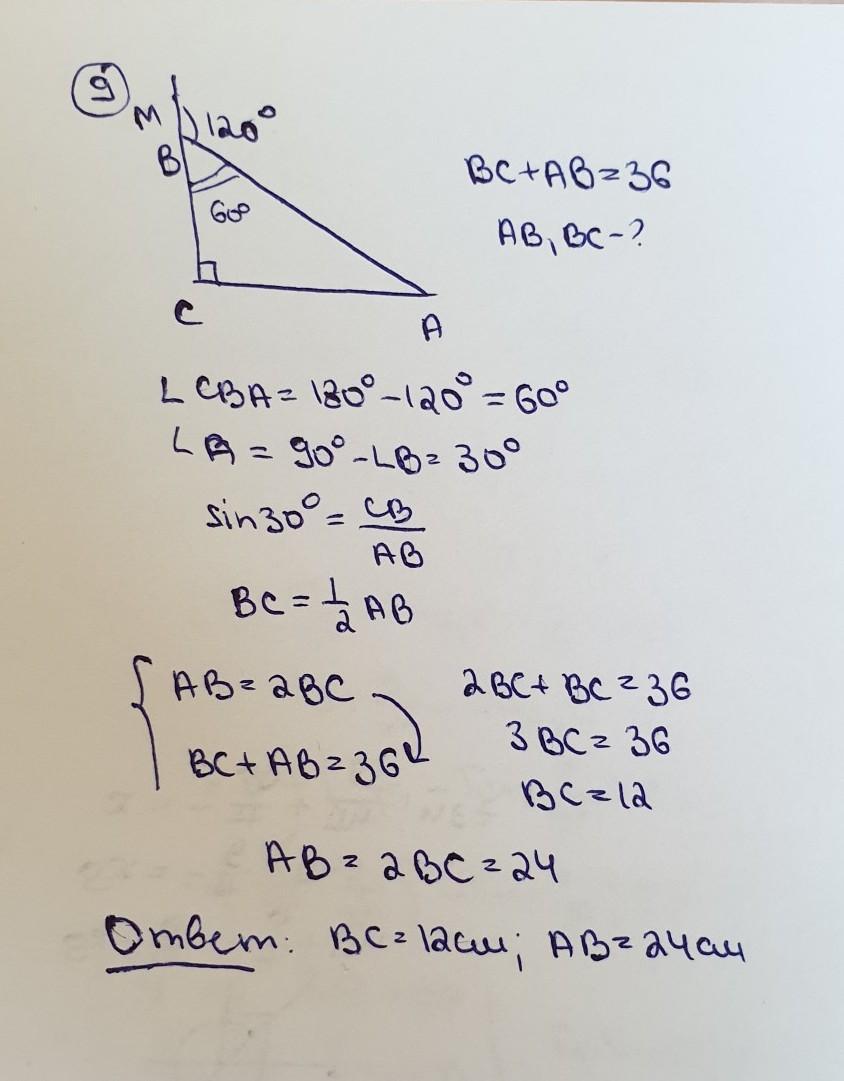 9
M 120°
B
60°
C
A
BC+AB=36
AB, BC-?
∠CBA=180°-120°=60°
∠A=90°-∠B=30°
sin30°=CB/AB
BC=1/2 AB
{ AB=2BC
BC+AB=36
2BC+BC=36
3BC=36
BC=12
AB=2BC=24
Ответ: BC=12см; AB=24см